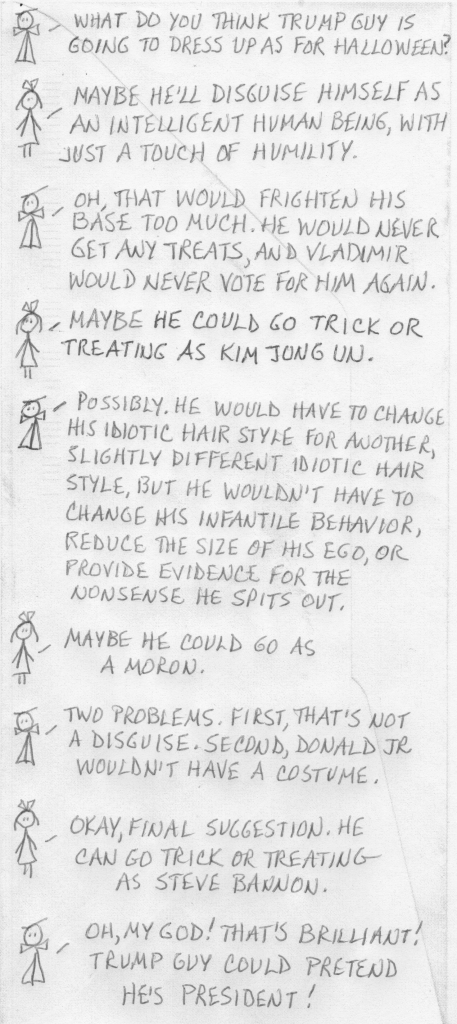 WHAT DO YOU THINK TRUMP GUY IS
GOING TO DRESS UP AS FOR HALLOWEEN?
MAYBE HE'LL DISGUISE HIMSELF AS
AN INTELLIGENT HUMAN BEING, WITH
JUST A TOUCH OF HUMILITY.
OH, THAT WOULD FRIGHTEN HIS
BASE TOO MUCH. HE WOULD NEVER
GET ANY TREATS, AND VLADIMIR
WOULD NEVER VOTE FOR HIM AGAIN.
MAYBE HE COULD GO TRICK OR
TREATING AS KIM JONG UN.
POSSIBLY. HE WOULD HAVE TO CHANGE
HIS IDIOTIC HAIR STYLE FOR ANOTHER,
SLIGHTLY DIFFERENT IDIOTIC HAIR
STYLE, BUT HE WOULDN'T HAVE TO
CHANGE HIS INFANTILE BEHAVIOR,
REDUCE THE SIZE OF HIS EGO, OR
PROVIDE EVIDENCE FOR THE
NONSENSE HE SPITS OUT.
MAYBE HE COULD GO AS
A MORON.
TWO PROBLEMS. FIRST, THAT'S NOT
A DISGUISE. SECOND, DONALD JR
WOULDN'T HAVE A COSTUME.
OKAY, FINAL SUGGESTION. HE
CAN GO TRICK OR TREATING
AS STEVE BANNON.
OH, MY GOD! THAT'S BRILLIANT!
TRUMP GUY COULD PRETEND
HE'S PRESIDENT!